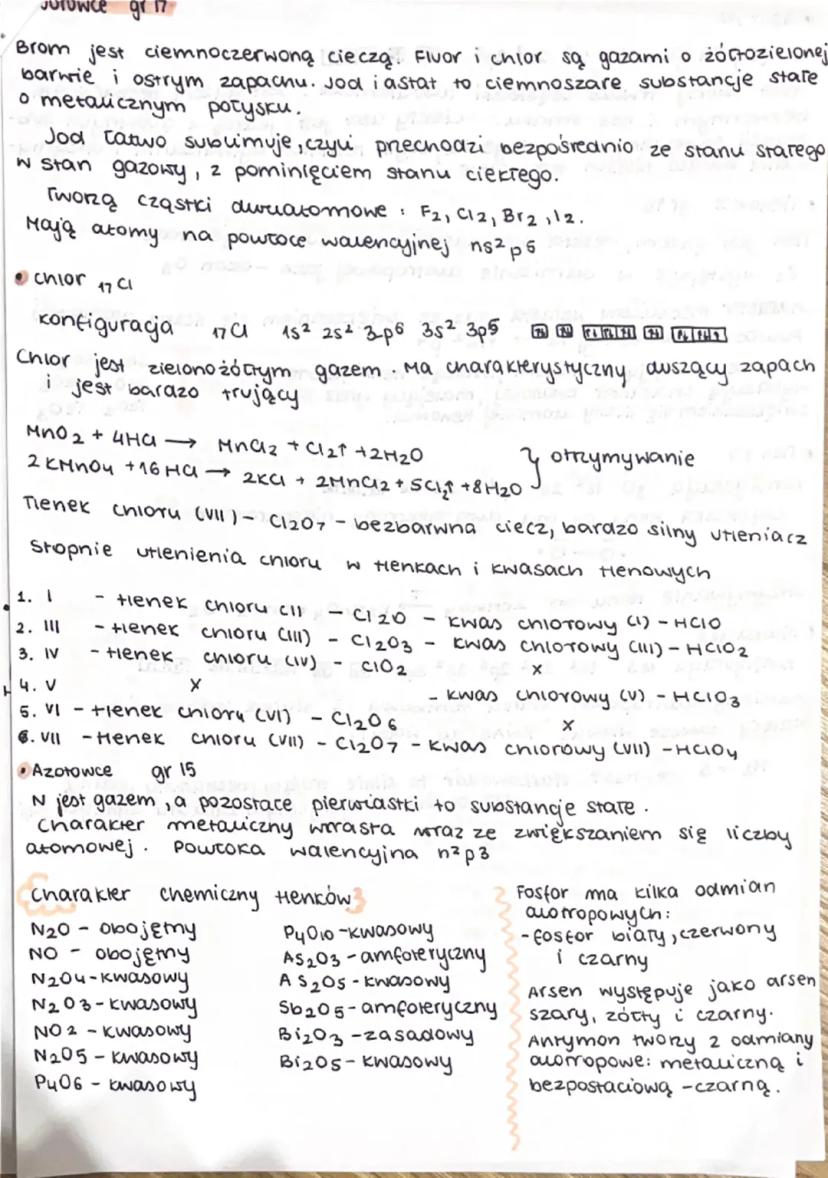 gr 17
Brom jest ciemnoczerwoną cieczą. Fluor i chlor są gazami o żółtozielonej
barwie i ostrym zapachu. Jod i astat to ciemnoszare substancje stałe
o metalicznym połysku.
Jod łatwo sublimuje, czyli przechodzi bezpośrednio ze stanu stałego
w stan gazowy, z pominięciem stanu ciekłego.
Tworzą cząstki dwuatomowe : F2, Cl2, Br2, I2.
Mają atomy na powłoce walencyjnej ns² p5
• Chlor 17 Cl
konfiguracja 17 Cl 1s² 2s² 3p⁶ 3s² 3p⁵
Chlor jest zielonożółtym gazem. Ma charakterystyczny, duszący zapach
i jest bardzo trujący
MnO2 + 4HCl → MnCl2 + Cl2↑ + 2H2O
} otrzymywanie
2 KMnO4 + 16 HCl → 2KCl + 2MnCl2 + 5Cl2↑ + 8H2O
Tlenek chloru (VII) - Cl2O7 - bezbarwna ciecz, bardzo silny utleniacz
Stopnie utlenienia chloru w tlenkach i kwasach tlenowych
1. I - tlenek chloru (I) - Cl2O - kwas chlorowy (I) - HClO
2. III - tlenek chloru (III) - Cl2O3 - kwas chlorowy (III) - HClO2
3. IV - tlenek chloru (IV) - ClO2 x
4. V x - kwas chlorowy (V) - HClO3
5. VI - tlenek chloru (VI) - Cl2O6 x
6. VII - tlenek chloru (VII) - Cl2O7 - kwas chlorowy (VII) - HClO4
• Azotowce gr 15
N jest gazem, a pozostałe pierwiastki to substancje stałe.
Charakter metaliczny wzrasta wraz ze zwiększaniem się liczby
atomowej. Powłoka walencyjna n²p3
Charakter chemiczny tlenków
N2O - obojętny
NO - obojętny
N2O4 - kwasowy
N2O3 - kwasowy
NO2 - kwasowy
N2O5 - kwasowy
P4O6 - kwasowy
P4O10 - kwasowy
As2O3 - amfoteryczny
As2O5 - kwasowy
Sb2O5 - amfoteryczny
Bi2O3 - zasadowy
Bi2O5 - kwasowy
Fosfor ma kilka odmian
alotropowych:
- fosfor biały, czerwony
i czarny
Arsen występuje jako arsen
szary, żółty i czarny.
Antymon tworzy 2 odmiany
alotropowe: metaliczną i
bezpostaciową - czarną.